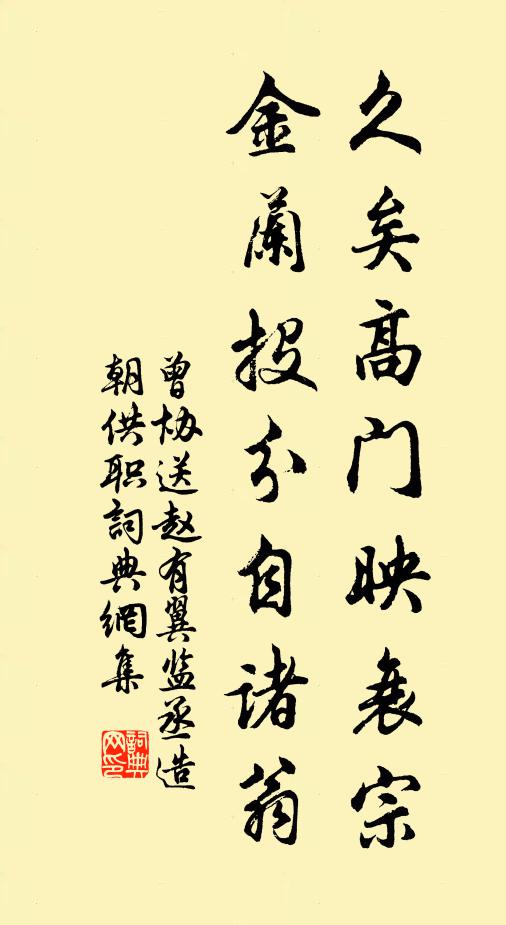 久矣高门映衰宗
金兰投分自诸翁
曾协送赵有翼监丞造
朝供职詞典網集
詞典网印